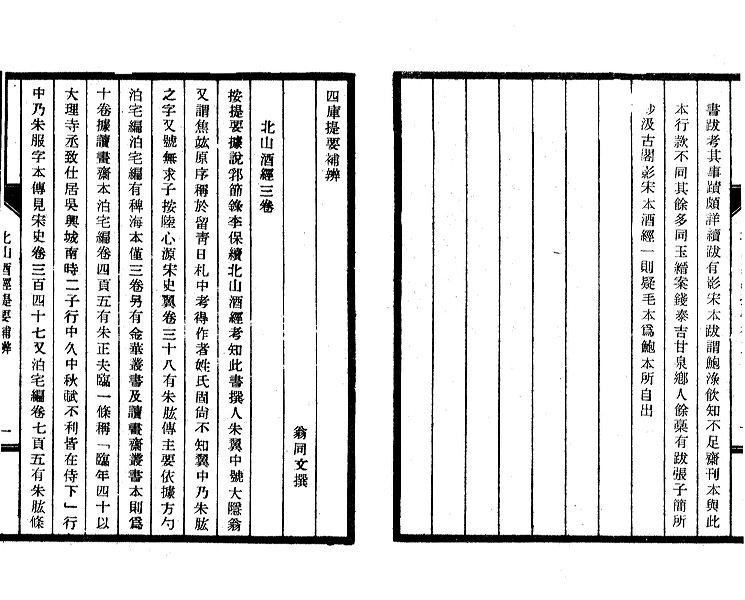 書跋考其事蹟頗詳續跋有影宋本跋謂鮑淥飲知不足齋刊本與此
本行款不同其餘多同玉縉案錢泰吉甘泉鄉人餘藁有跋張子簡所
抄汲古閣影宋本酒經一則疑毛本爲鮑本所自出
四庫提要補辨
翁同文撰
北山酒經三卷
按提要據說郛節錄李保續北山酒經考知此書撰人朱翼中號大隱翁
又謂焦竑原序稱於留青日札中考得作者姓氏固尙不知翼中乃朱肱
之字又號無求子按陸心源宋史翼卷三十八有朱肱傳主要依據方勺
泊宅編泊宅編有稗海本僅三卷另有金華叢書及讀畫齋叢書本則爲
十卷據讀畫齋本泊宅編卷四頁五有朱正夫臨一條稱「臨年四十以
大理寺丞致仕居吳興城南時二子行中久中秋試不利皆在侍下」行
中乃朱服字本傳見宋史卷三百四十七又泊宅編卷七頁五有朱肱條
北山酒經提要補辨
一